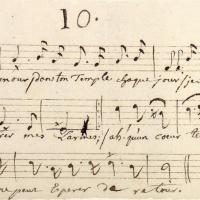 10.
amour/dans ton Temple chaque jour/je
mes Larmes;/ah! qu'un coeur te
peut Eperer de retour.